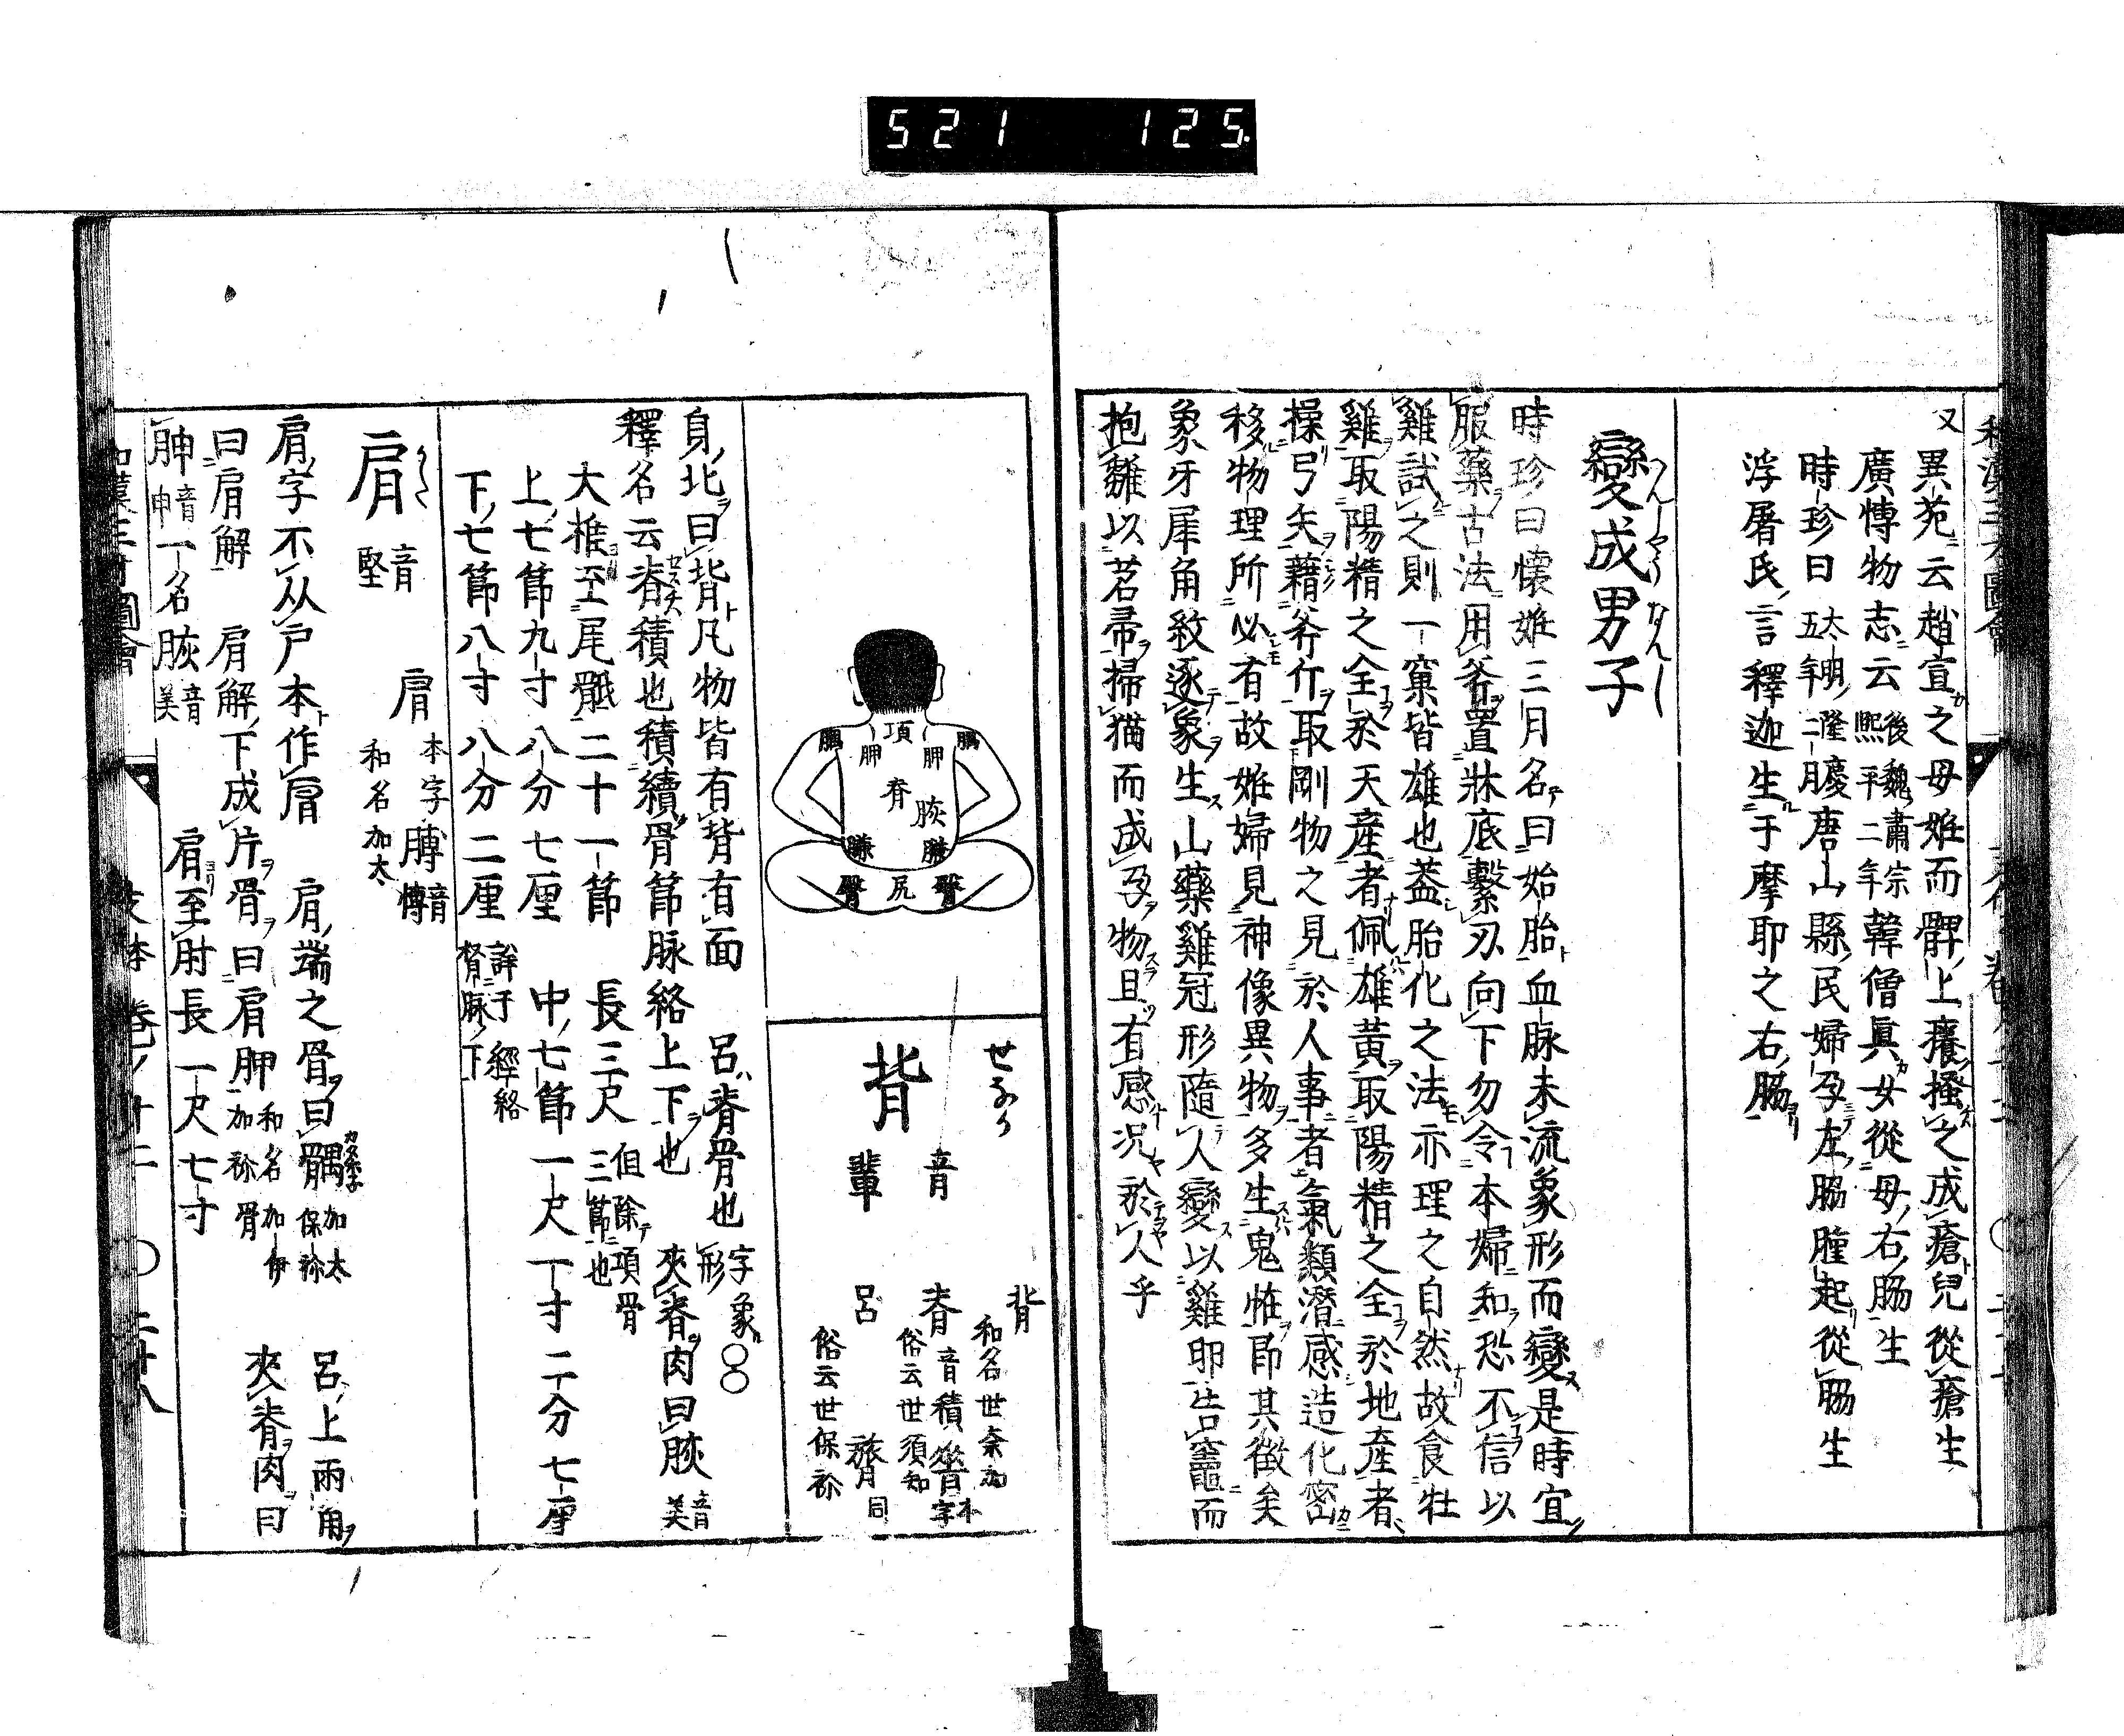 521 125.
又異苑云趙宣之母姙而髀上癢搔之成瘡兒從瘡生
廣愽物志云後魏肅宗熙平二年韓僧眞女從母右脇生
時珍曰太明隆慶五年二月唐山縣民婦孕左脇腫起從脇生
浮屠氏言釋迦生于摩耶之右脇
變成男子
時珍曰懷姙三月名曰始胎血脉未流象形而變是時宜
服藥古法用斧置牀底繫刃向下勿令本婦和恐不信以
雞試之則一窠皆雄也盖胎化之法亦理之自然故食牡
雞取陽精之全於天産者佩雄黃取陽精之全於地産者
操弓矢藉斧斤取剛物之見於人事者氣類潛感造化密
移物理所必有故姙婦見神像異物多生鬼恠卽其徵矣
象牙犀角紋逐象生山藥雞冠形隨人變以雞卵告竈而
抱雛以茗帚掃猫而成孕物且有感况於人乎
項
髃 胛 胛 髃
脊 胨
臁 臁
臀 尻 臀
せなか
背
音輩
背 和名世奈加
脊 音積 俗云世須知 膂 本字
呂 俗云世保祢 膂 同
身北曰背凡物皆有背有面 呂脊骨也 字象形
釋名云脊積也積續骨節脉絡上下也 夾脊肉曰胨 音美
大椎至尾骶二十一節 長三尺 但除項骨三節也
上七節九寸八分七厘 中七節一尺一寸二分七厘
下七節八寸八分二厘 詳于經絡督脉下
肩 音堅
肩 本字 和名加太
膊 音愽
肩字不从戶本作肩 肩端之骨曰髃 加太保祢 呂上兩角
曰肩解 肩解下成片骨曰肩胛 和名加伊加祢骨 夾脊肉曰
胂 音申 一名胨 音美 肩至肘長一尺七寸